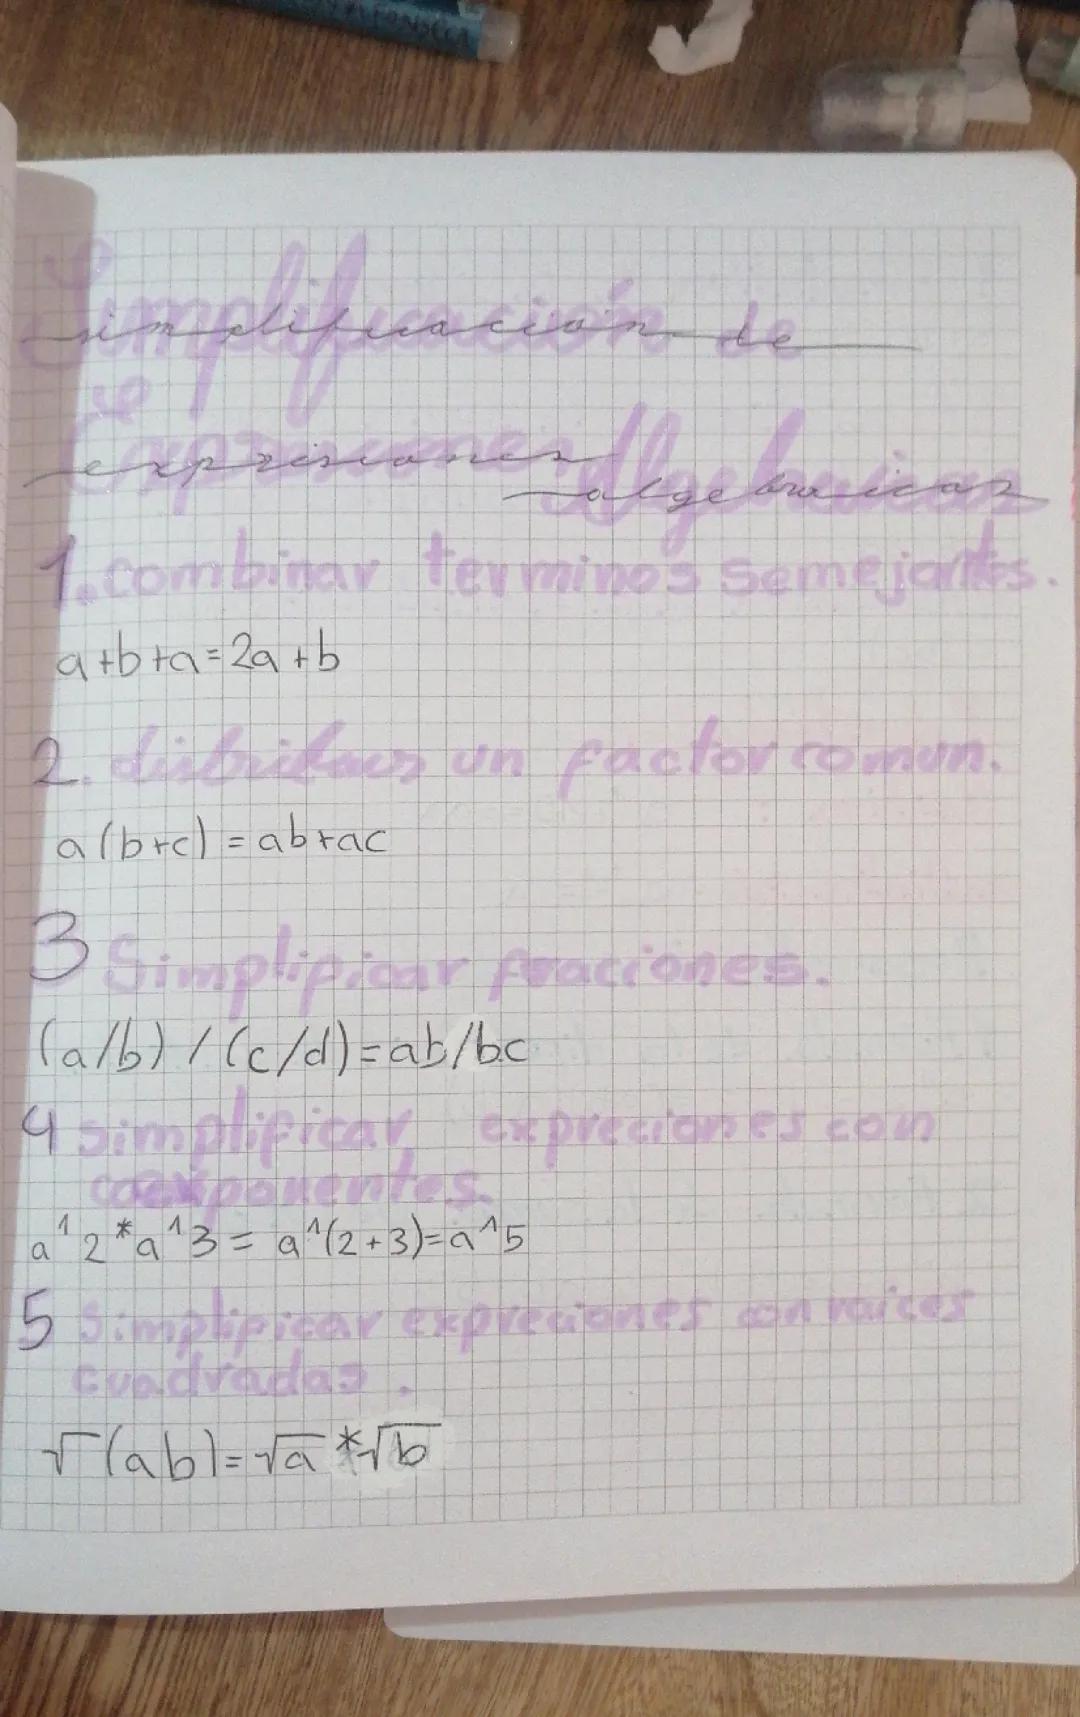 Simplificación de
Expresiones Algebraicas
1. combinar terminos semejantes.
a+b+a=2a+b
2. un factor comun.
a(b+c)=ab+ac
3 Simplipicar fracciones.
(a/b)/(c/d)=ab/bc
4 simplificar expreciones con
exponentes.
a^2*a^3=a^(2+3)=a^5
5 Simplipicar expreciones con raices
cuadradas.
√(ab)=√a*√b